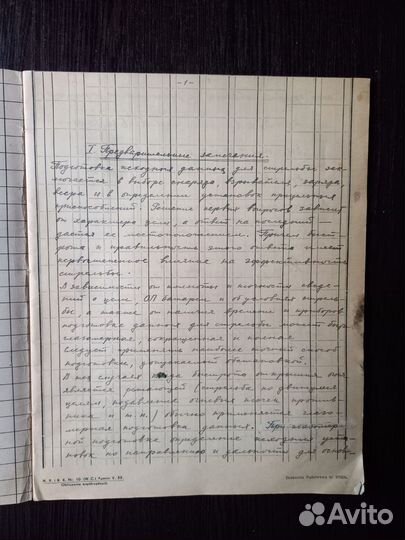 - 1 -
I. Предварительные замечания.
Подготовка исходных данных для стрельбы зак-
лючается в выборе снаряда, взрывателя, заряда,
веера и в определении установок прицельных
приспособлений. Решение первых вопросов зависит
от характера цели, а ответ на последний
дается ее местоположением. Причем быст-
рота и правильность этого ответа имеет
первостепенное влияние на эффективность
стрельбы.
В зависимости от полноты и точности сведе-
ний о цели, ОП батареи и об условиях стрель-
бы, а также от наличия времени и приборов
подготовка данных для стрельбы может быть
глазомерная, сокращенная и полная.
Следует применять наиболее точный способ
подготовки, допускаемый обстановкой.
В тех случаях когда быстрота открытия огня
является решающей (стрельба по движущимся
целям, подавление огневых точек против-
ника и т.п.) обычно применяется глазо-
мерная подготовка данных. При глазомер-
ной подготовке определение исходных уста-
новок по направлению и дальности для основ-
Avito